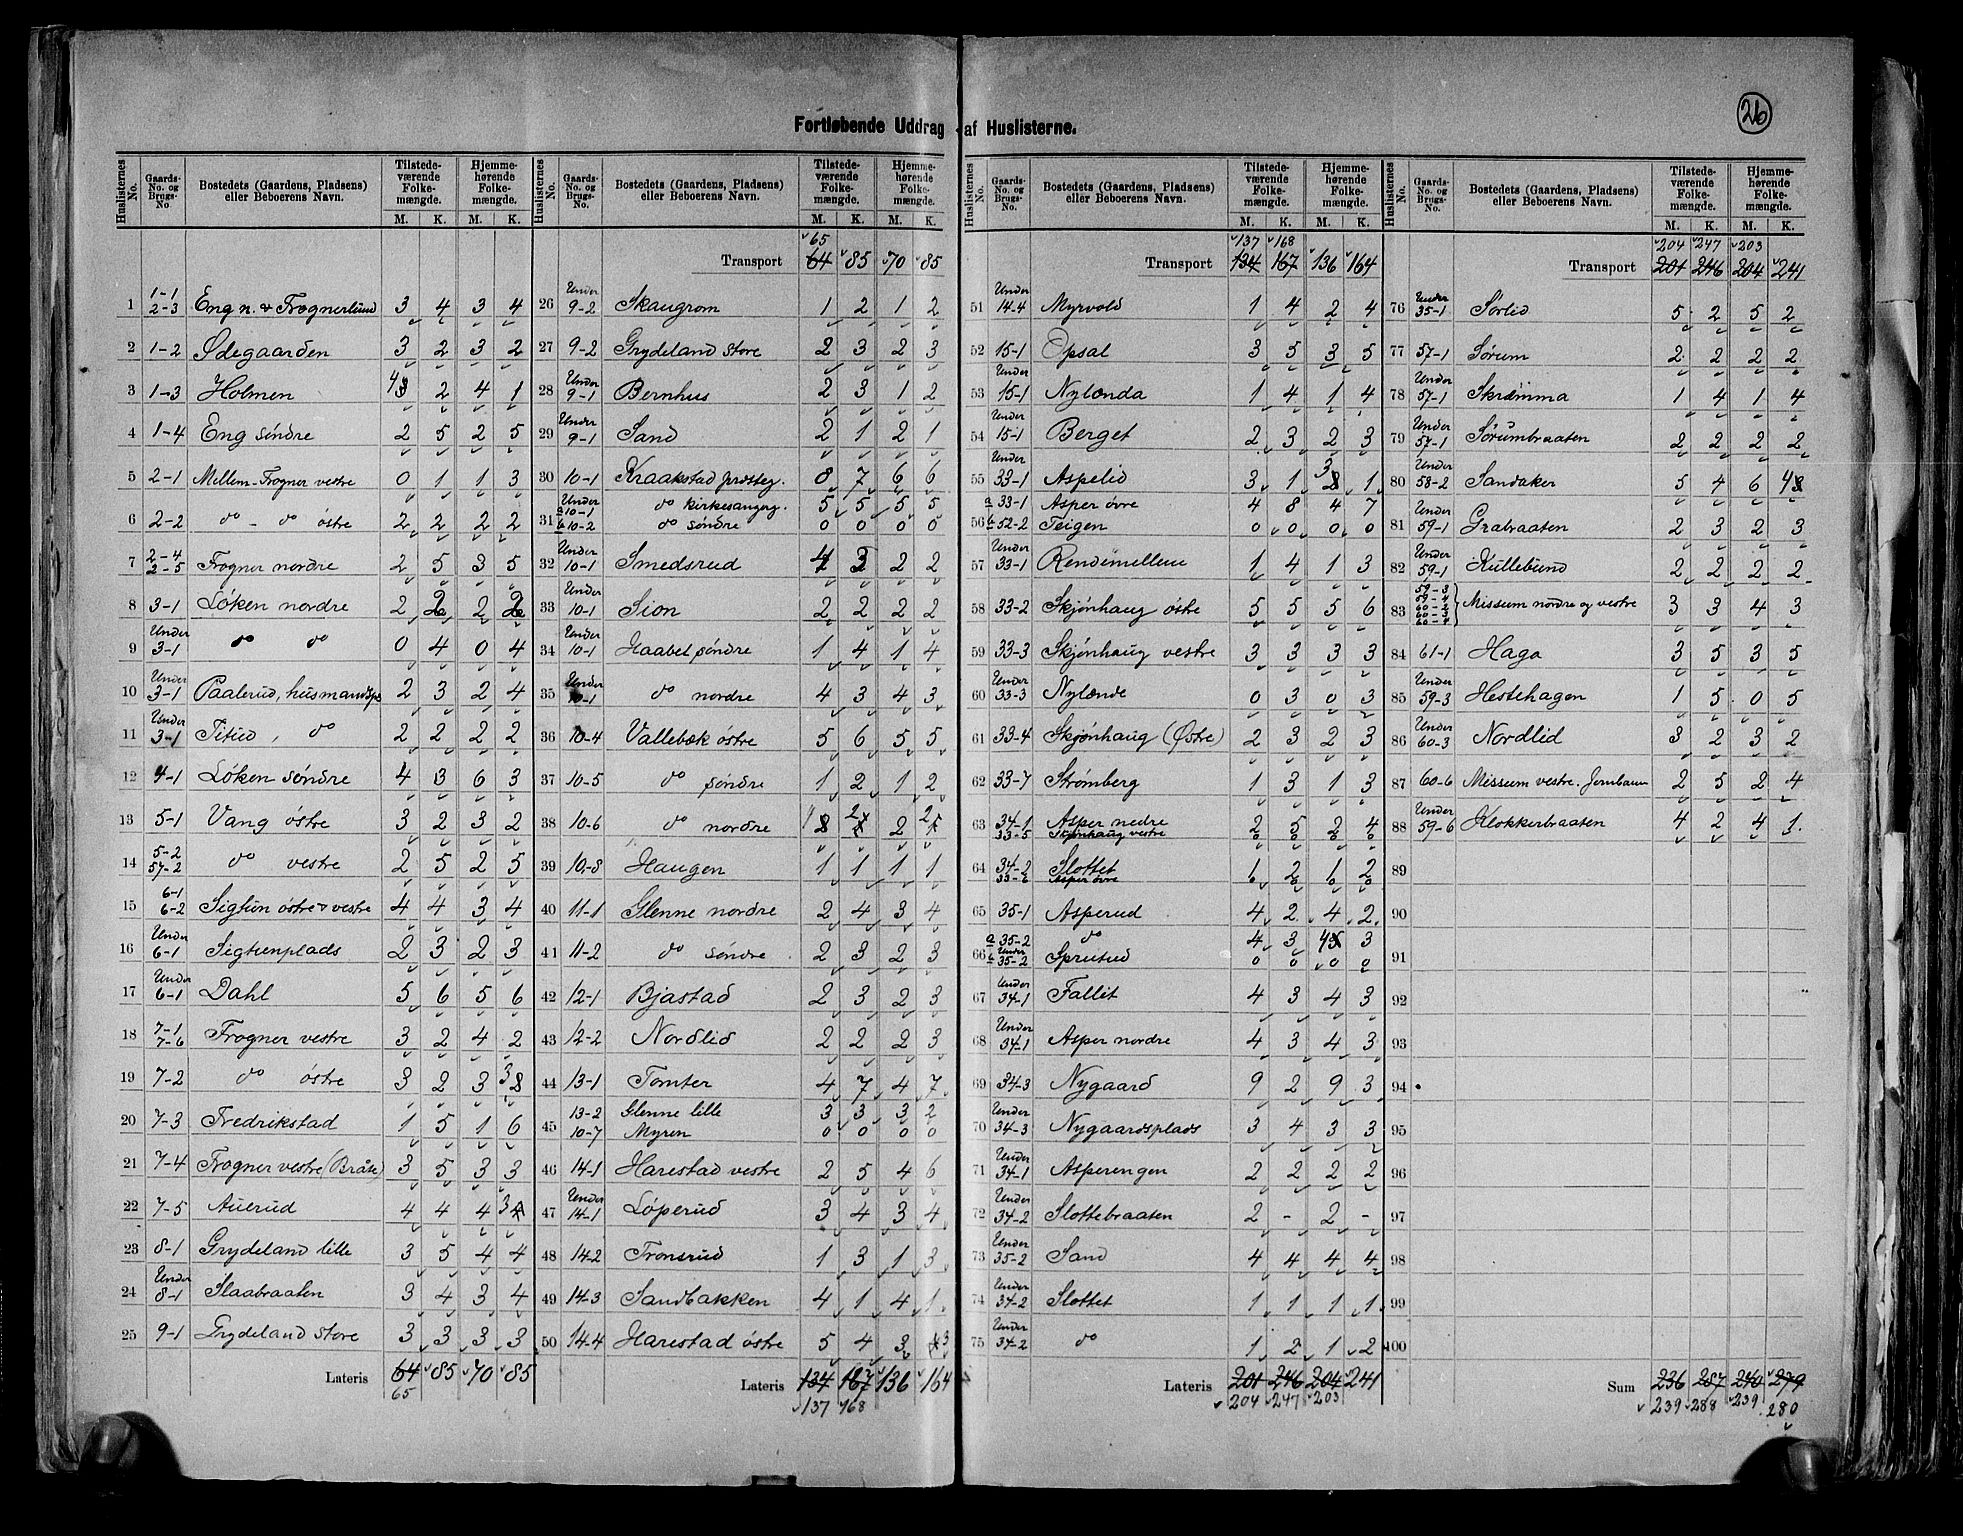 26
Fortløbende Uddrag af Huslisterne.
Huslisternes No. | Gaards-No. og Brugs-No. | Bostedets (Gaardens, Pladsens) eller Beboerens Navn. | Tilstedeværende Folkemængde. M. K. | Hjemmehørende Folkemængde. M. K.
1 | 1-1 2-3 | Eng n. & Frognerlund | 3 | 4 | 3 | 4
2 | 1-2 | Ødegaarden | 3 | 2 | 3 | 2
3 | 1-3 | Holmen | 4 | 2 | 4 | 1
4 | 1-4 | Eng søndre | 2 | 5 | 2 | 5
5 | 2-1 | Mellem-Frogner vestre | 0 | 1 | 1 | 3
6 | 2-2 | do - do østre | 2 | 2 | 2 | 2
7 | 2-4 2-5 | Frogner nordre | 2 | 5 | 3 | 5
8 | 3-1 | Løken nordre | 2 | 2 | 2 | 2
9 | Under 3-1 | do do | 0 | 4 | 0 | 4
10 | Under 3-1 | Paalerud, husmandspl | 2 | 3 | 2 | 4
11 | Under 3-1 | do | 2 | 2 | 2 | 2
12 | 4-1 | Løken søndre | 4 | 3 | 6 | 3
13 | 5-1 | Vang østre | 3 | 2 | 3 | 2
14 | 5-2 57-2 | do vestre | 2 | 5 | 2 | 5
15 | 6-1 6-2 | Sigtun østre & vestre | 4 | 4 | 3 | 4
16 | Under 6-1 | Sigtunplads | 2 | 3 | 2 | 3
17 | Under 6-1 | Dahl | 5 | 6 | 5 | 6
18 | 7-1 7-6 | Frogner vestre | 3 | 2 | 4 | 2
19 | 7-2 | do østre | 3 | 2 | 3 | 3
20 | 7-3 | Fredrikstad | 1 | 5 | 1 | 6
21 | 7-4 | Frogner vestre (Bråte) | 3 | 5 | 3 | 3
22 | 7-5 | Auerud | 4 | 4 | 4 | 3
23 | 8-1 | Grydeland lille | 3 | 5 | 4 | 4
24 | Under 8-1 | Slaabraaten | 3 | 4 | 3 | 4
25 | 9-1 | Grydeland store | 3 | 3 | 3 | 3
Lateris 64 85 70 85
65
Huslisternes No. | Gaards-No. og Brugs-No. | Bostedets (Gaardens, Pladsens) eller Beboerens Navn. | Tilstedeværende Folkemængde. M. K. | Hjemmehørende Folkemængde. M. K.
65
Transport 64 85 70 85
26 | Under 9-2 | Skaugrom | 1 | 2 | 1 | 2
27 | 9-2 | Grydeland store | 2 | 3 | 2 | 3
28 | Under 9-1 | Bernhus | 2 | 3 | 1 | 2
29 | Under 9-1 | Sand | 2 | 1 | 2 | 1
30 | 10-1 | Kraakstad præsteg. | 8 | 7 | 6 | 6
31 | Under a 10-1 | do kirkesangerg. | 5 | 5 | 5 | 5
b 10-2 | do søndre | 0 | 0 | 0 | 0
32 | Under 10-1 | Smedsrud | 4 | 3 | 2 | 2
33 | Under 10-1 | Sion | 2 | 2 | 2 | 2
34 | Under 10-1 | Haabet søndre | 1 | 4 | 1 | 4
35 | Under 10-1 | do nordre | 4 | 3 | 4 | 3
36 | 10-4 | Vallebæk østre | 5 | 6 | 5 | 5
37 | 10-5 | do søndre | 1 | 2 | 1 | 2
38 | 10-6 | do nordre | 2 | 2
39 | 10-8 | Haugen | 1 | 1 | 1 | 1
40 | 11-1 | Glenne nordre | 2 | 4 | 3 | 4
41 | 11-2 | do søndre | 2 | 3 | 2 | 3
42 | 12-1 | Bjastad | 2 | 3 | 2 | 3
43 | 12-2 | Nordlid | 2 | 2 | 2 | 3
44 | 13-1 | Tomter | 4 | 7 | 4 | 7
45 | 13-2 | Glenne lille | 3 | 3 | 3 | 2
10-7 | Myren | 0 | 0 | 0 | 0
46 | 14-1 | Harestad vestre | 2 | 5 | 4 | 6
47 | Under 14-1 | Løperud | 3 | 4 | 3 | 4
48 | 14-2 | Tronsrud | 1 | 3 | 1 | 3
49 | 14-3 | Sandbakken | 4 | 1 | 4 | 1
50 | 14-4 | Harestad østre | 5 | 4 | 3 | 3
Lateris 134 167 136 164
137 168
Huslisternes No. | Gaards-No. og Brugs-No. | Bostedets (Gaardens, Pladsens) eller Beboerens Navn. | Tilstedeværende Folkemængde. M. K. | Hjemmehørende Folkemængde. M. K.
137 168
Transport 134 167 136 164
51 | Under 14-4 | Myrvold | 1 | 4 | 2 | 4
52 | 15-1 | Opsal | 3 | 5 | 3 | 5
53 | Under 15-1 | Nylænda | 1 | 4 | 1 | 4
54 | Under 15-1 | Berget | 2 | 3 | 2 | 3
55 | Under 33-1 | Aspelid | 3 | 1 | 3 | 1
56 | a 33-1 | Asper øvre | 4 | 8 | 4 | 7
b 52-2 | Teigen | 0 | 0 | 0 | 0
57 | Under 33-1 | Rendemellem | 1 | 4 | 1 | 3
58 | 33-2 | Skjønhaug østre | 5 | 5 | 5 | 6
59 | 33-3 | Skjønhaug vestre | 3 | 3 | 3 | 3
60 | Under 33-3 | Nylænde | 0 | 3 | 0 | 3
61 | 33-4 | Skjønhaug (Østre) | 2 | 3 | 2 | 3
62 | 33-7 | Strømberg | 1 | 3 | 1 | 3
63 | 34-1 33-5 | Asper nedre Skjønhaug vestre | 2 | 5 | 2 | 4
64 | 34-2 33-6 | Slottet Asper øvre | 6 | 2 | 6 | 2
65 | 35-1 | Asperud | 4 | 2 | 4 | 2
66 | a 35-2 | do | 4 | 3 | 4 | 3
b Under 35-2 | Sprutud | 0 | 0 | 0 | 0
67 | Under 34-1 | Fallit | 4 | 3 | 4 | 3
68 | Under 34-1 | Asper nordre | 4 | 3 | 4 | 3
69 | 34-3 | Nygaard | 9 | 2 | 9 | 3
70 | Under 34-3 | Nygaardsplads | 3 | 4 | 3 | 3
71 | Under 34-1 | Asperengen | 2 | 2 | 2 | 2
72 | Under 34-2 | Slottebraaten | 2 | - | 2 | -
73 | Under 35-2 | Sand | 4 | 4 | 4 | 4
74 | Under 34-2 | Slottet | 1 | 1 | 1 | 1
75 | Under 34-2 | do | 1 | 2 | 1 | 2
Lateris 201 246 204 241
204 247 203
Huslisternes No. | Gaards-No. og Brugs-No. | Bostedets (Gaardens, Pladsens) eller Beboerens Navn. | Tilstedeværende Folkemængde. M. K. | Hjemmehørende Folkemængde. M. K.
204 247 203
Transport 201 246 204 241
76 | Under 35-1 | Sørlid | 5 | 2 | 5 | 2
77 | 57-1 | Sørum | 2 | 2 | 2 | 2
78 | Under 57-1 | Skrømma | 1 | 4 | 1 | 4
79 | Under 57-1 | Sørumbraaten | 2 | 2 | 2 | 2
80 | Under 58-2 | Sandaker | 5 | 4 | 6 | 4
81 | Under 59-1 | Grabraaten | 2 | 3 | 2 | 3
82 | Under 59-1 | Kullebund | 2 | 2 | 2 | 2
83 | 59-3 59-4 60-2 60-3 60-4 | Missum nordre og vestre | 3 | 3 | 4 | 3
84 | 61-1 | Haga | 3 | 5 | 3 | 5
85 | Under 59-3 | Hestehagen | 1 | 5 | 0 | 5
86 | Under 60-3 | Nordlid | 3 | 2 | 3 | 2
87 | 60-6 | Missum vestre. Jernbane | 2 | 5 | 2 | 4
88 | Under 59-6 | Klokkerbraaten | 4 | 2 | 4 | 1
89
90
91
92
93
94
95
96
97
98
99
100
Sum 236 287 240 279
239 288 239 280